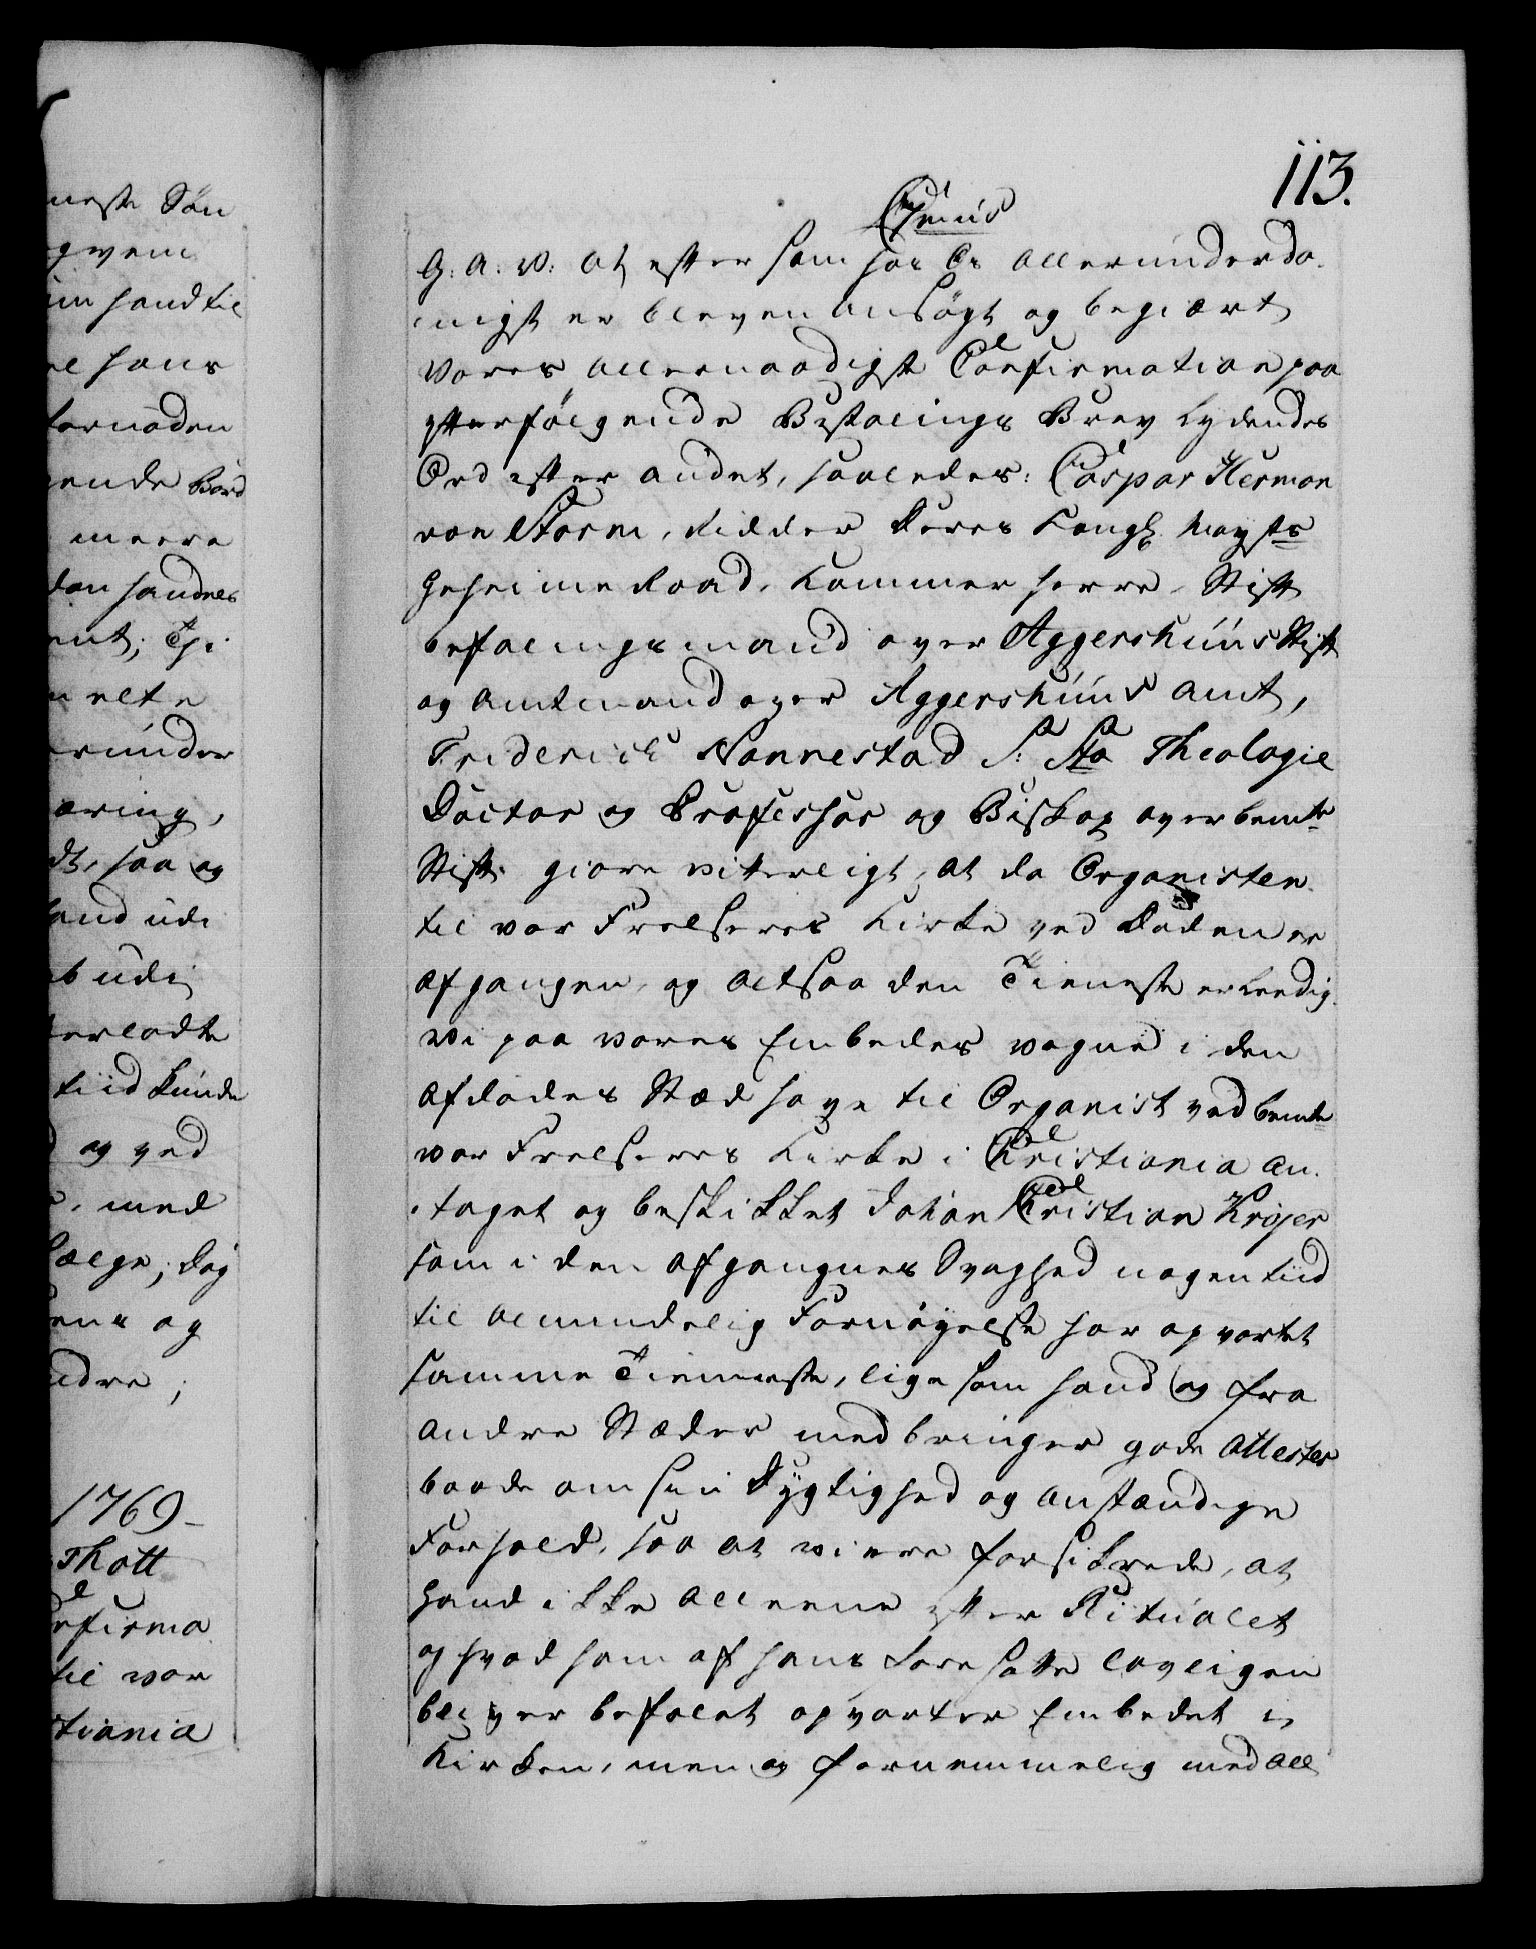 113.
Chrius
G: A: V: At efter som hos Os allerunderda-
nigst er bleven ansøgt og begiært
Vores allernaadigste Confirmation paa
efterfølgende Bestalings Brev lydendes
Ord efter andet, saaledes: Caspar Herman
von Storm, Ridder Deres Kongl. Mayts
Geheime Raad, Kammer Herre, Stift
befalingsmand over Aggershuus Stift
og Amtmand over Aggershuus Amt,
Friderich Nannestad S: Sta Theologie
Doctor og Professor og Biskop over bemte
Stift. giøre vitterligt, at da Organisten
til vor Frelseres Kirke ved Døden er
afgangen, og altsaa den Tieneste er ledig
Vi paa vores Embedes vegne i den
afdødes Stæd have til Organist ved bemte
vor Frelseres Kirke i Christiania an-
taget og beskikket Johan Christian Krøjer
som i den afgangnes Svaghed nogen tiid
til almindelig Fornøyelse har opvartet
samme Tienneste, lige som hand og fra
andre Stæder medbringer gode Attester
baade om sin Dygtighed og anstændige
Forhold, saa at vi ere forsikrede, at
hand ikke alleene efter Ritualet
og hvad som af hans foresatte lovligen
bliver befalet opvarter Embedet i
Kirken, men og fornemmelig med all
neste Søn
hand til
hans
fornøden
ende Bord
meere
handres
elte
runder
æring,
saa og
hand udi
udi
terladte
tiid kunde
og ved
med
følge, dog
og
ndre;
1769-
Thott
nfirma
til vor
stiania